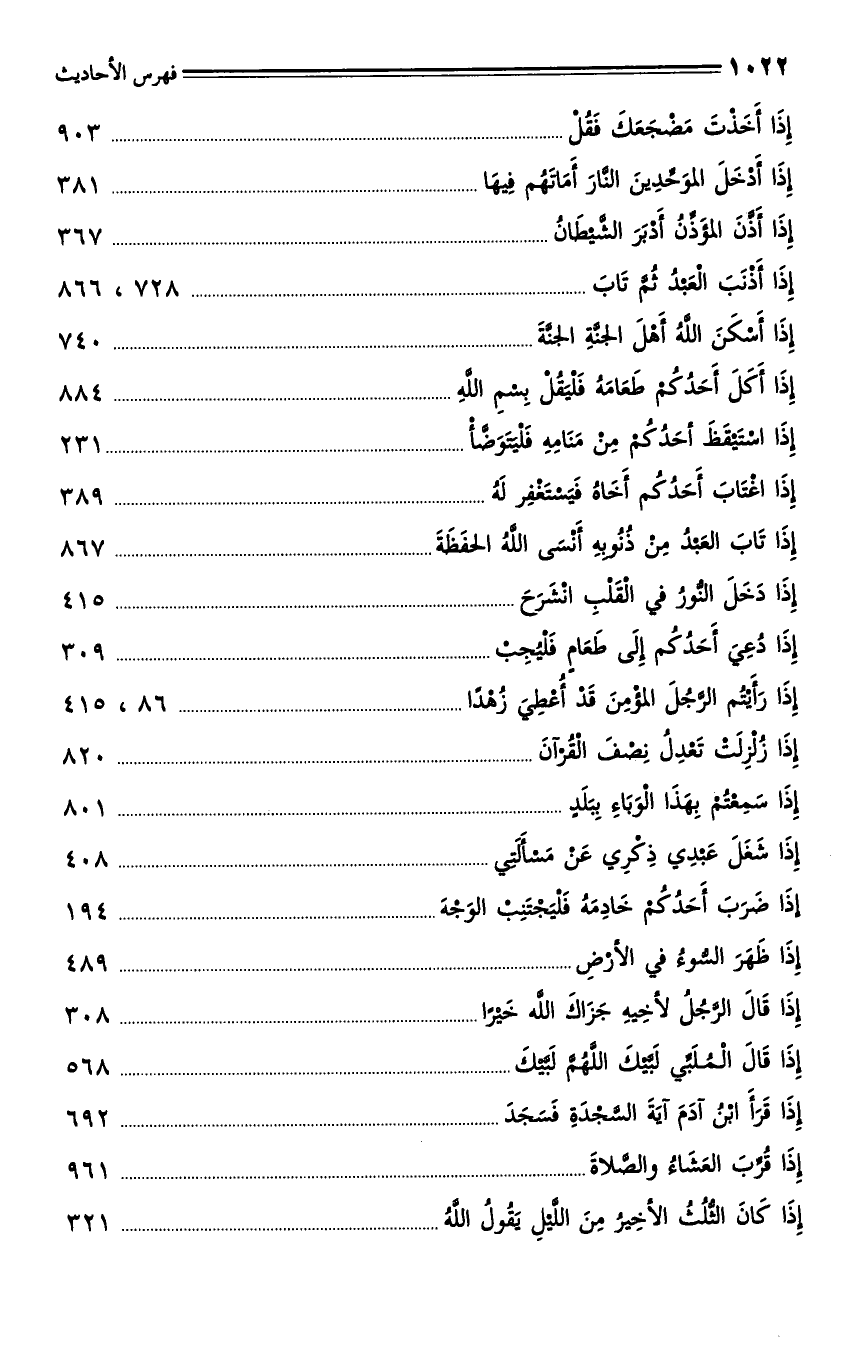 ١٠٢٢ فهرس الأحاديث
إِذَا أَخَذْتَ مَضْجَعَكَ فَقُلْ ........ ٩٠٣
إِذَا أَدْخَلَ الموَحِّدِينَ النَّارَ أَمَاتَهُم فِيهَا ........ ٣٨١
إِذَا أَذَّنَ المؤَذِّنُ أَدْبَرَ الشَّيْطَانُ ........ ٣٦٧
إِذَا أَذْنَبَ الْعَبْدُ ثُمَّ تَابَ ........ ٧٢٨ ، ٨٦٦
إِذَا أَسْكَنَ اللَّهُ أَهْلَ الجنَّةِ الجنَّةَ ........ ٧٤٠
إِذَا أَكَلَ أَحَدُكُمْ طَعَامَهُ فَلْيَقُلْ بِسْمِ اللَّهِ ........ ٨٨٤
إِذَا اسْتَيْقَظَ أحَدُكُمْ مِنْ مَنَامِهِ فَلْيَتَوَضَّأْ ........ ٢٣١
إِذَا اغْتَابَ أَحَدُكُم أَخَاهُ فَيَسْتَغْفِر لَهُ ........ ٣٨٩
إِذَا تَابَ العَبْدُ مِنْ ذُنُوبِهِ أَنْسَى اللَّهُ الحفَظَةَ ........ ٨٦٧
إِذَا دَخَلَ النُّورُ في الْقَلْبِ انْشَرَحَ ........ ٤١٥
إِذَا دُعِيَ أَحَدُكُم إِلَى طَعَامٍ فَلْيُجِبْ ........ ٣٠٩
إِذَا رَأَيْتُم الرَّجُلَ المؤْمِنَ قَدْ أُعْطِيَ زُهْدًا ........ ٨٦ ، ٤١٥
إِذَا زُلْزِلَتْ تَعْدِلُ نِصْفَ الْقُرْآنَ ........ ٨٢٠
إِذَا سَمِعْتُمْ بِهَذَا الْوَبَاءِ بِبَلَدٍ ........ ٨٠١
إِذَا شَغَلَ عَبْدِي ذِكْرِي عَنْ مَسْأَلَتِي ........ ٤٠٨
إِذَا ضَرَبَ أَحَدُكُمْ خَادِمَهُ فَلْيَجْتَنِبْ الوَجْهَ ........ ١٩٤
إِذَا ظَهَرَ السُّوءُ في الأرْضِ ........ ٤٨٩
إِذَا قَالَ الرَّجُلُ لأخِيهِ جَزَاكَ اللَّه خَيْرًا ........ ٣٠٨
إِذَا قَالَ الْمُلَبِّي لَبَّيْكَ اللَّهُمَّ لَبَّيْكَ ........ ٥٦٨
إِذَا قَرَأَ ابْنُ آدَمَ آيَةَ السَّجْدَةِ فَسَجَدَ ........ ٦٩٢
إِذَا قُرِّبَ العَشَاءُ والصَّلاةَ ........ ٩٦١
إِذَا كَانَ الثُّلُثُ الأخِيرُ مِنَ اللَّيْلِ يَقُولُ اللَّهُ ........ ٣٢١